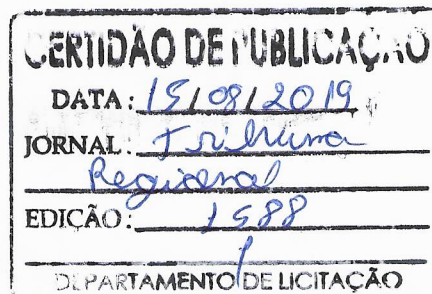 CERTIDÃO DE PUBLICAÇÃO
DATA: 15/08/2019
JORNAL: Tribuna
Regional
EDIÇÃO: 1588
DEPARTAMENTO DE LICITAÇÃO